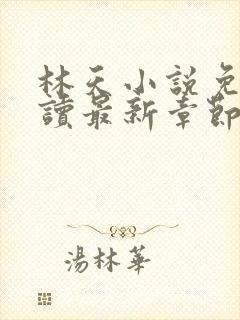 林天小説免
讀最新章節
湯林華